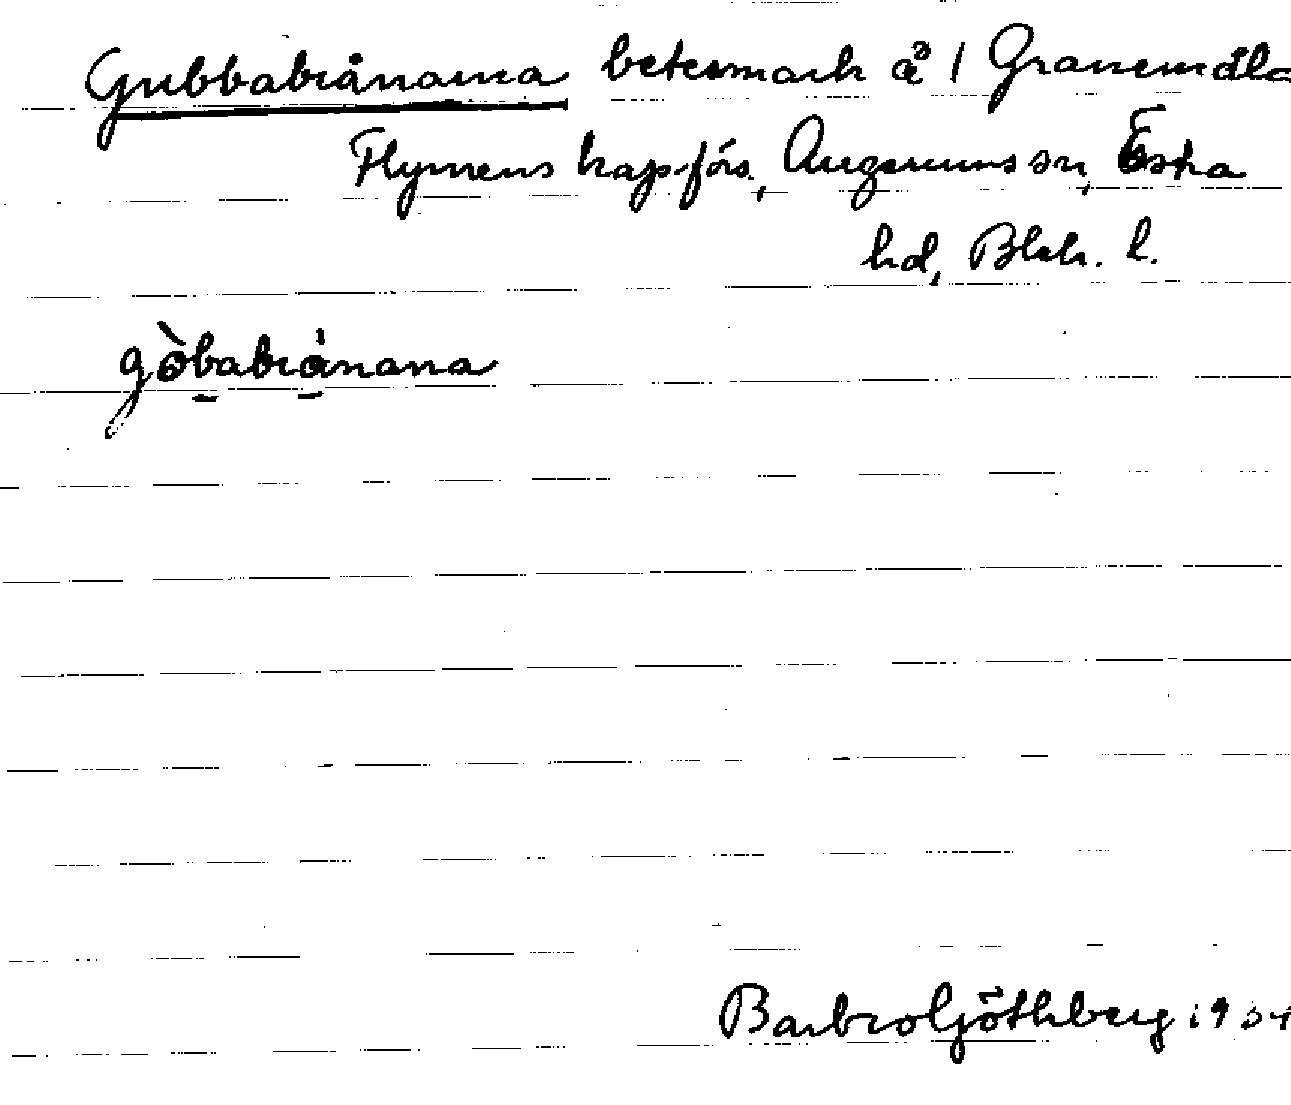 Gubbabrånarna betesmark å 1 Granemåla
Flymens kapförs., Augerums sn, Östra
hd, Blek. l.
gòbabrånana
Barbro Göthberg 1934